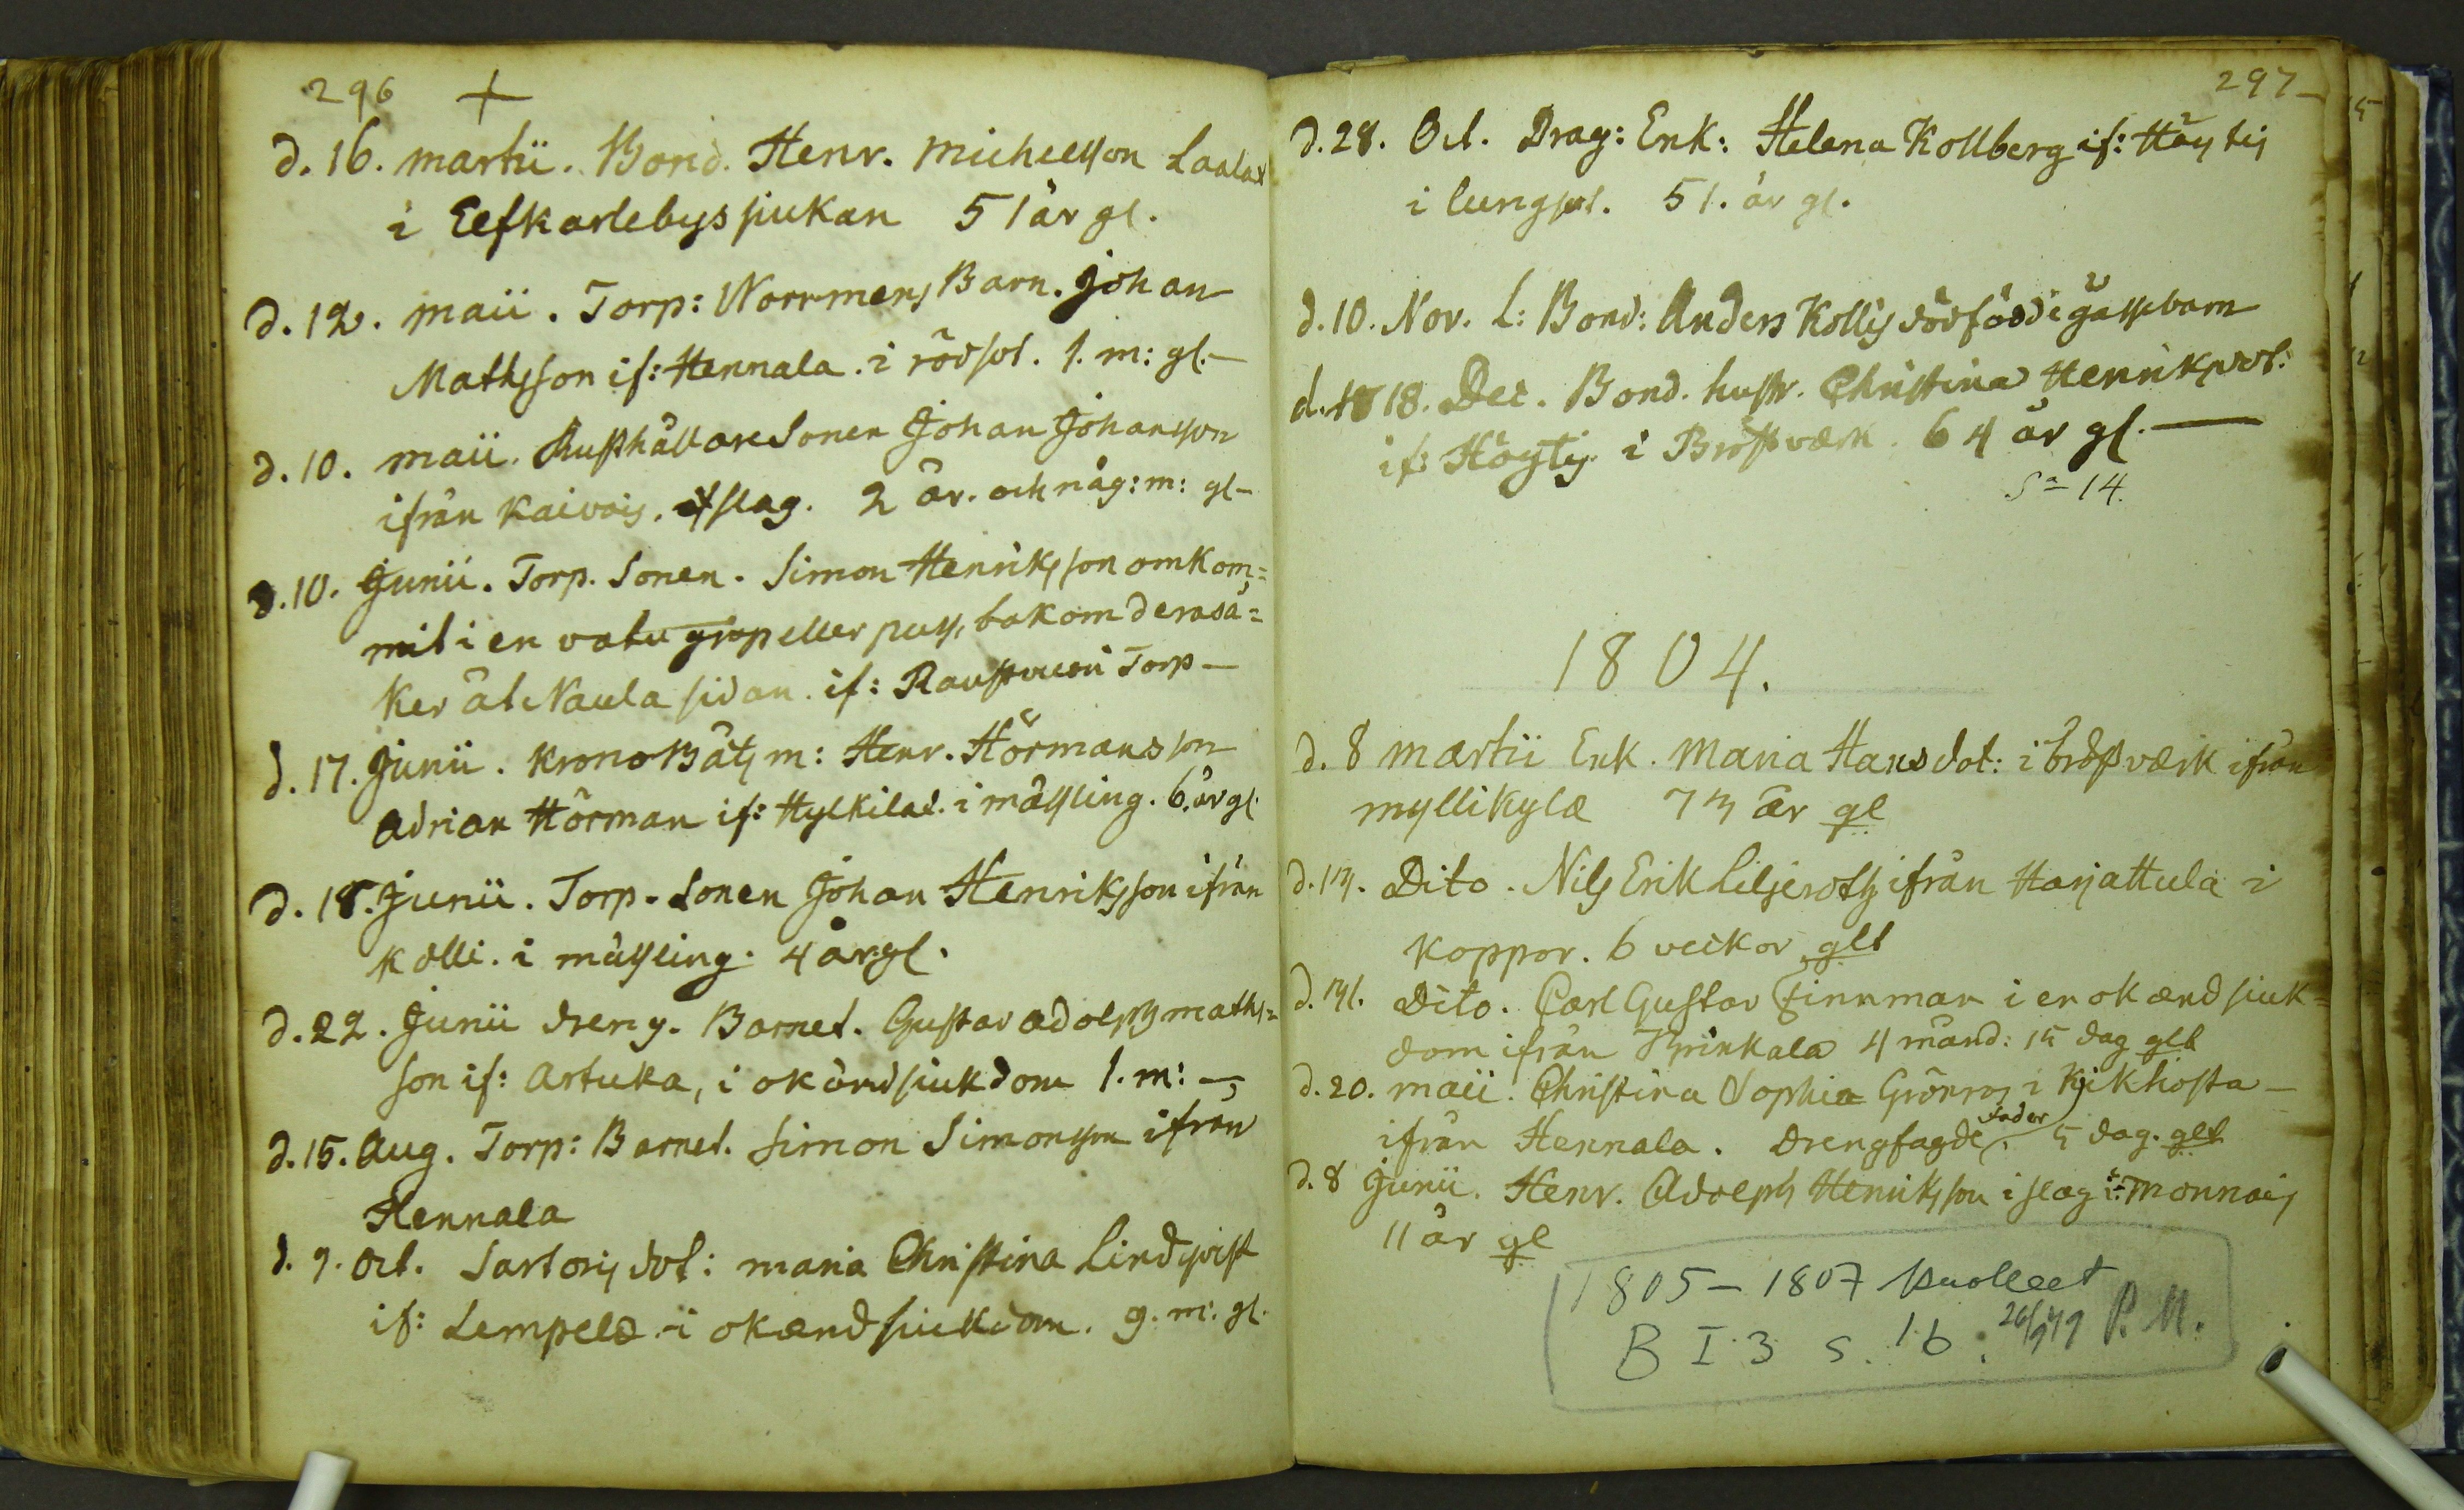 296 +
d. 16. martii. Bond. Henr. Michelsson Laalax
i Elfkarlebysjukan 51 år gl.
d. 12. maii. Torp: Norrmens Barn. Johan
Mathsson if: Hennala. i rödsot. 1. m: gl.
d. 10. maii. Rusthållaresonen Johan Johansson
ifrån Kaivois. slag. 2 år. och någ: m: gl
d. 10. Junii. Torp. Sonen. Simon Henriksson omkom=
mit i en eller puss, bakom deras å=
ker åt Naula sidan. if: Torp
d. 17. Junii. KronoBåtsm: Henr. Hörmans son
Adrian Hörman if: i mässling. 6. år gl.
d. 18. Junii. Torp. Sonen Johan Henriksson ifrån
Kolli. i mässling. 4 år gl.
d. 22. Junii dreng. Barnet. Gustav Adolph Maths=
son if: Artuka, i okänd siukdom 1. m:
d. 15. Aug. Torp: Barnet. Simon Simonsson ifrån
Hennala
d. 9. Oct. dot: Maria Christina Lindqvist
if: Lempelä i okænd siukdom. 9. m. gl.
297
d. 28. Oct. Drag: Enk: Helena Kollberg if: Höytis
i lungsot. 51. år gl.
d. 10. Nov. L: Bond: Anders Kollis dödfödde gåssebarn
d. 18. Dec. Bond. hustr. Christina Henriksdot:
if: Höytis i Bröstværk. 64 år gl.
Sa 14.
1804.
d. 8 martii Enk. Maria Hansdot: i bröstværk ifrån
myllikylæ 73 år gl
d. 13. Dito. Nils Erik Liljeroth ifrån Harjattula i
koppor. 6 veckor glt
d. 31. Dito. Carl Gustav Finnman i en okænd siuk=
dom ifrån Brinkala 4 månd: 15 dag glt
d. 20. maii. Christina Sophia Grönros i Kikhosta
ifrån Hennala. fader 5 dag. glt
d. 8 Junii. Henr. Adolph Henriksson i slag if: Monnois
11 år gl
1805 – 1807 kuolleet
B I 3 s. 16. 26/9 49 P. M.